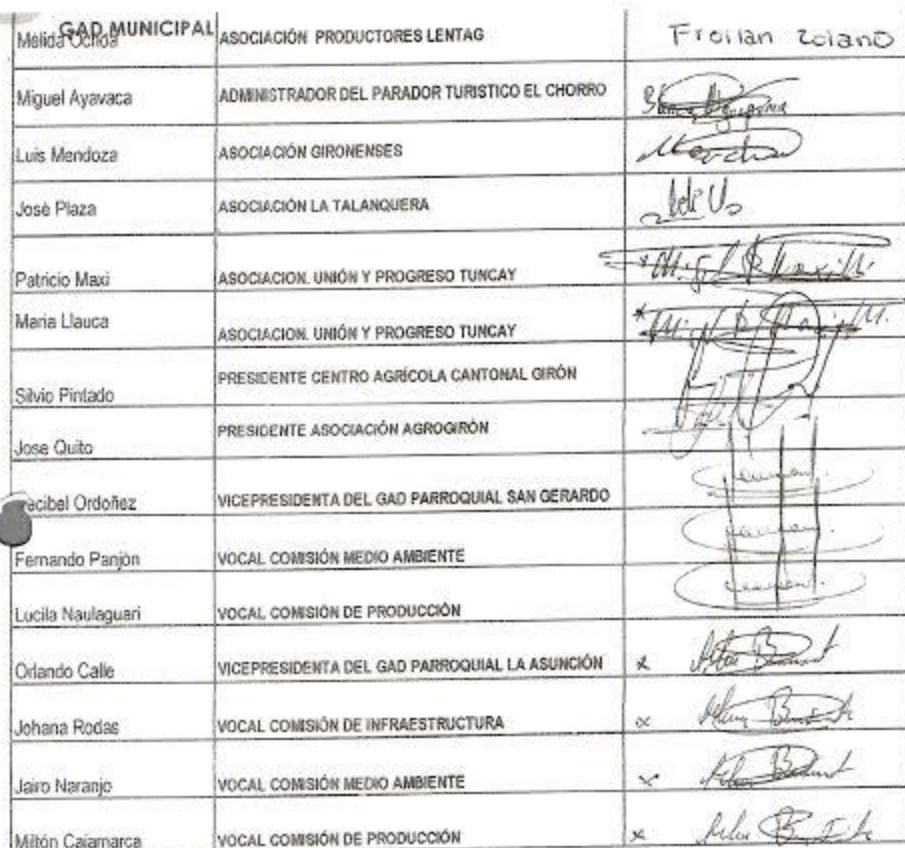 GAD MUNICIPAL
Melida Ochoa ASOCIACIÓN PRODUCTORES LENTAG Froilan Zolano
Miguel Ayavaca ADMINISTRADOR DEL PARADOR TURISTICO EL CHORRO
Luis Mendoza ASOCIACIÓN GIRONENSES
José Plaza ASOCIACIÓN LA TALANQUERA
Patricio Maxi ASOCIACION. UNIÓN Y PROGRESO TUNCAY
Maria Llauca ASOCIACION. UNIÓN Y PROGRESO TUNCAY
Silvio Pintado PRESIDENTE CENTRO AGRÍCOLA CANTONAL GIRÓN
Jose Quito PRESIDENTE ASOCIACIÓN AGROGIRÓN
Ordoñez VICEPRESIDENTA DEL GAD PARROQUIAL SAN GERARDO
Fernando Panjón VOCAL COMISIÓN MEDIO AMBIENTE
Lucila Naulaguari VOCAL COMISIÓN DE PRODUCCIÓN
Orlando Calle VICEPRESIDENTA DEL GAD PARROQUIAL LA ASUNCIÓN x
Johana Rodas VOCAL COMISIÓN DE INFRAESTRUCTURA x
Jairo Naranjo VOCAL COMISIÓN MEDIO AMBIENTE x
Miltón Cajamarca VOCAL COMISIÓN DE PRODUCCIÓN x